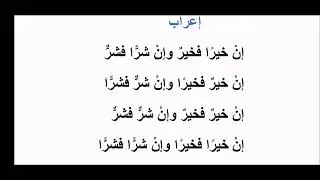 إعراب
إنْ خيرًا فخيرٌ وإنْ شرًّا فشرٌّ
إنْ خيرٌ فخيرًا وإنْ شرٌّ فشرًّا
إنْ خيرٌ فخيرٌ وإنْ شرٌّ فشرٌّ
إنْ خيرًا فخيرًا وإنْ شرًّا فشرًّا